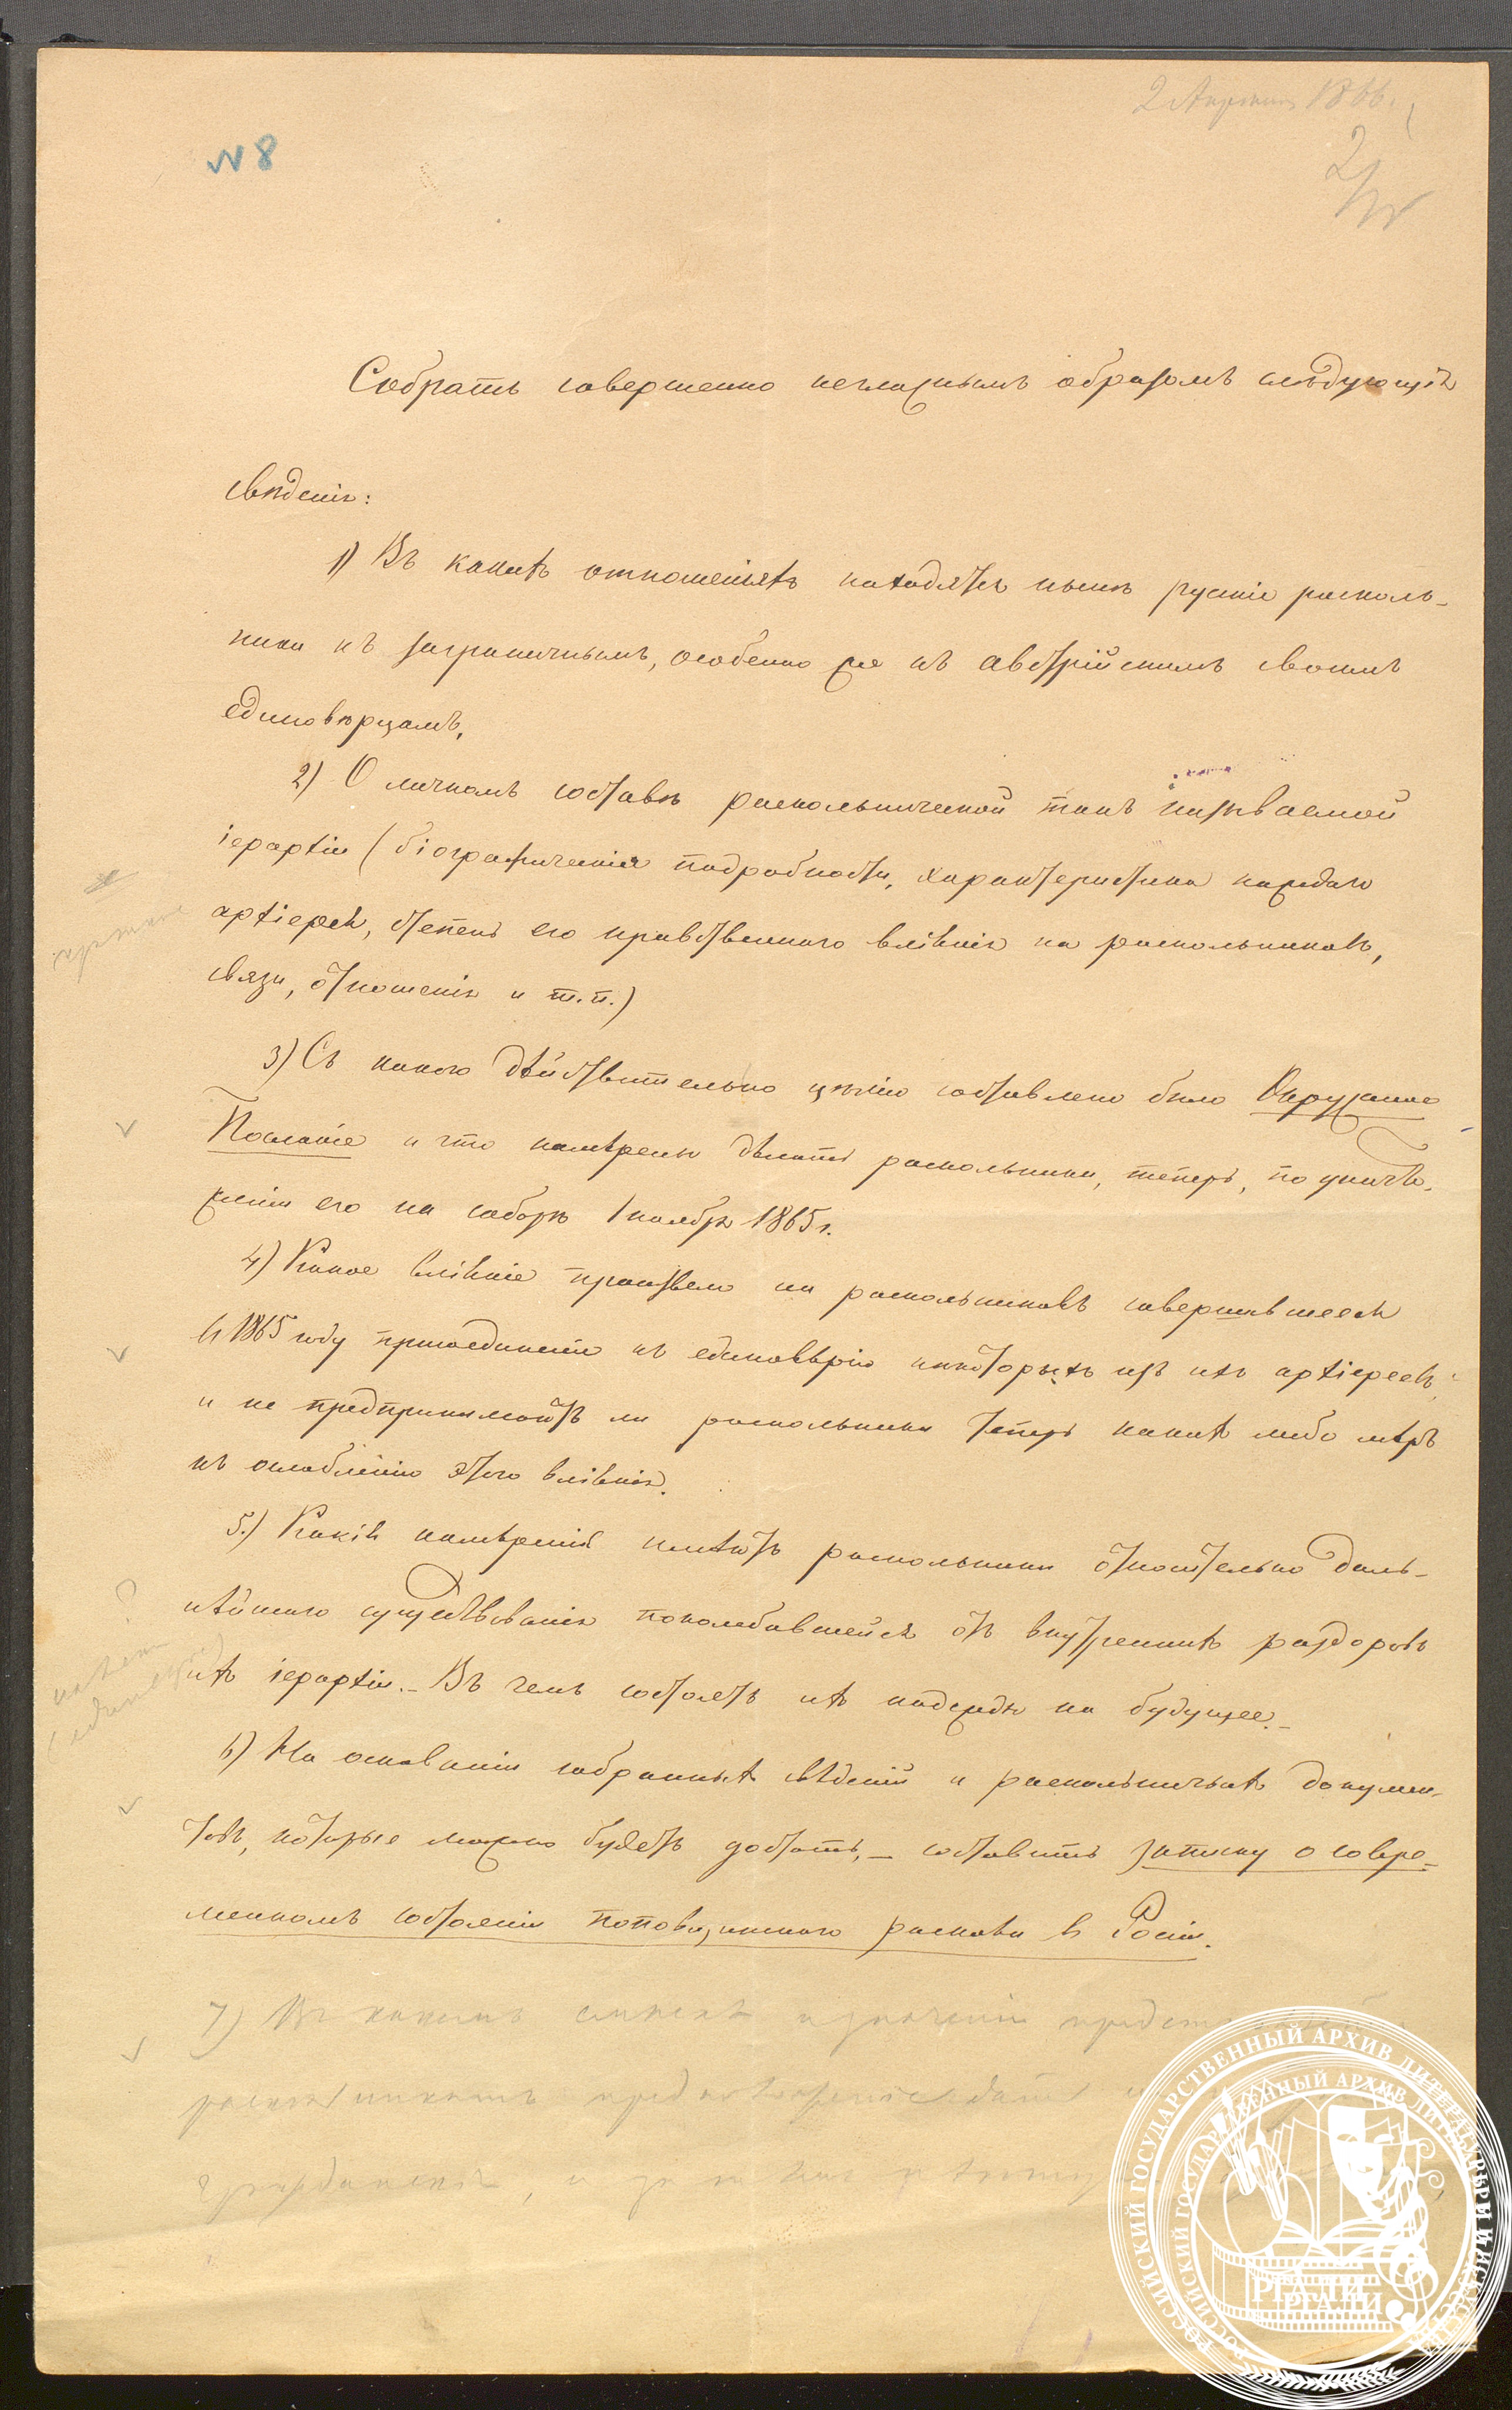 2 Апреля 1866.
№ 8
Собрать совершенно негласнымъ образомъ слѣдующія
свѣденія:
1) Въ какихъ отношеніяхъ находятся нынѣ рускіе расколь-
ники къ заграничнымъ, особенно же къ австрійскимъ своимъ
единовѣрцамъ,
2) О личномъ составѣ раскольнической такъ называемой
іерархіи (біографическія подробности, характеристика каждаго
архіерея, степень его нравственнаго вліянія на раскольниковъ,
связи, отношенія и т.п.)
3) Съ какою дѣйствительно цѣлію составлено было Окружное
Посланіе и что намѣрены дѣлать раскольники, теперь, по уничто-
женіи его на соборѣ 1 ноября 1865 г.
4) Какое вліяніе произвело на раскольниковъ совершившееся
въ 1865 году присоединеніе къ единовѣрію нѣкоторыхъ изъ ихъ архіереевъ,
и не предпринимаютъ ли раскольники теперь какихъ либо мѣръ
къ ослабленію этого вліянія.
5.) Какія намѣренія имѣютъ раскольники относительно даль-
нѣйшаго существованія поколебавшейся отъ внутреннихъ раздоровъ
ихъ іерархіи. – Въ чемъ состоятъ ихъ надежды на будущее. –
6) На основаніи собранныхъ свѣденій и раскольничьихъ докумен-
товъ, которые можно будетъ достать, – составить записку о совре-
менномъ состояніи поповщинскаго раскола въ Росіи.
7) Въ какомъ смыслѣ и значеніи
раскольникамъ
гражданскія, и
РОССИЙСКИЙ ГОСУДАРСТВЕННЫЙ АРХИВ ЛИТЕРАТУРЫ И ИСКУССТВА
РГАЛИ